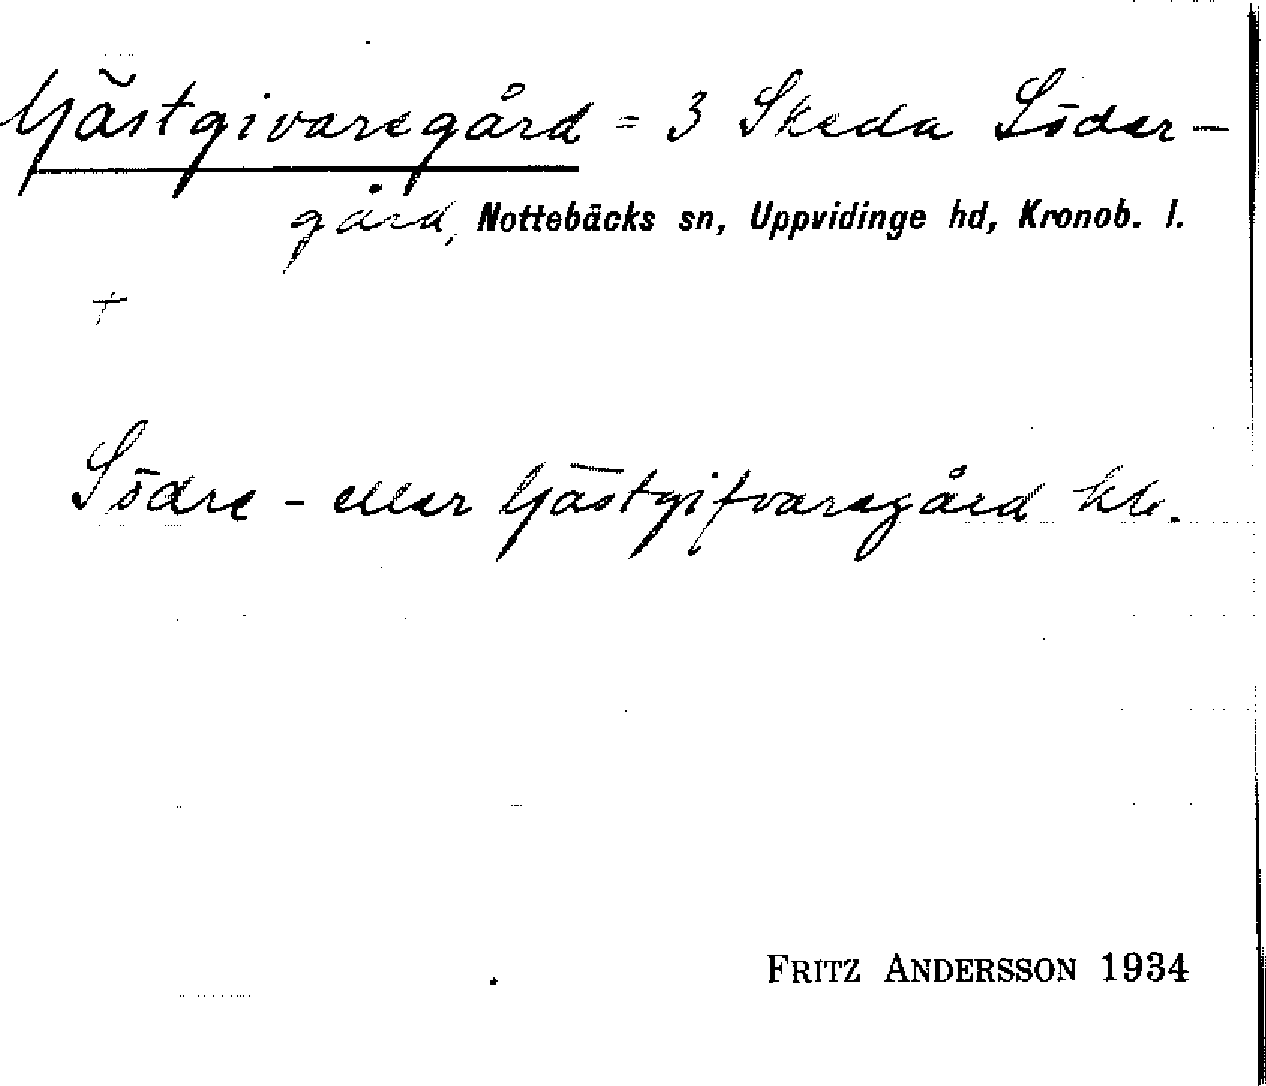 Gästgivaregård = 3 Skeda Söder-
gård, Nottebäcks sn, Uppvidinge hd, Kronob. l.
+
Södre- eller Gästgifvaregård
FRITZ ANDERSSON 1934